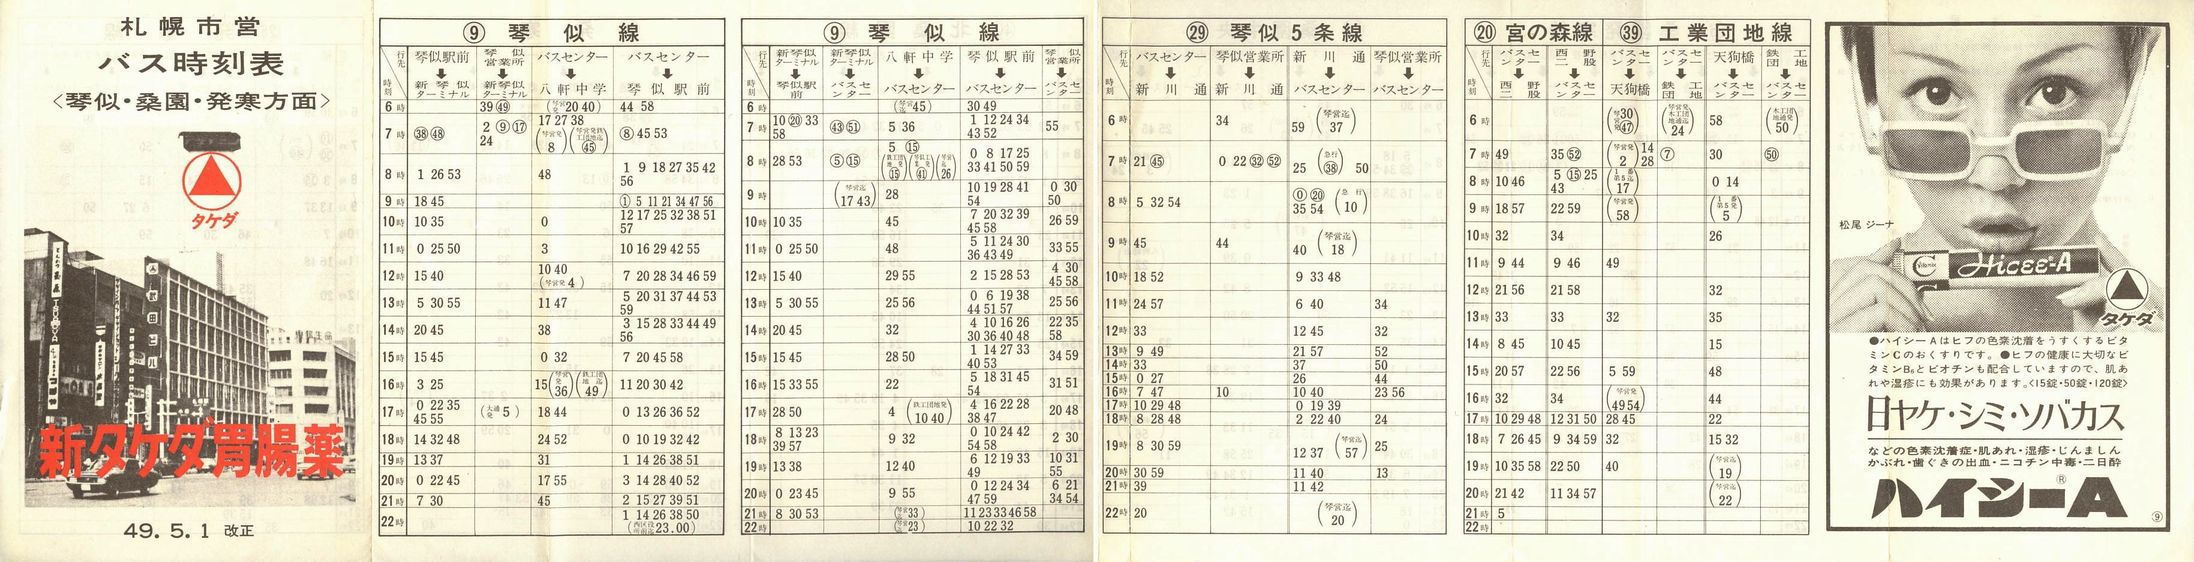 札幌市営
バス時刻表
<琴似・桑園・発寒方面>
タケダ
新タケダ胃腸薬
49.5.1 改正
⑨ 琴似線
行先 時刻 琴似駅前 ↓ 新琴似ターミナル 琴似営業所 ↓ 新琴似ターミナル バスセンター ↓ 八軒中学 バスセンター ↓ 琴似駅前
6時 39 ㊾ 20 40) 44 58
7時 ㊳ ㊽ 2 ⑨ ⑰ 24 17 27 38 (琴営発 8) (琴営発鉄工団地迄 ㊺) ⑧ 45 53
8時 1 26 53 48 1 9 18 27 35 42 56
9時 18 45 ① 5 11 21 34 47 56
10時 10 35 0 12 17 25 32 38 51 57
11時 0 25 50 3 10 16 29 42 55
12時 15 40 10 40 (琴営発 4) 7 20 28 34 46 59
13時 5 30 55 11 47 5 20 31 37 44 53 59
14時 20 45 38 3 15 28 33 44 49 56
15時 15 45 0 32 7 20 45 58
16時 3 25 15 (琴営発 36) (鉄工団地迄 49) 11 20 30 42
17時 0 22 35 45 55 (大通発 5) 18 44 0 13 26 36 52
18時 14 32 48 24 52 0 10 19 32 42
19時 13 37 31 1 14 26 38 51
20時 0 22 45 17 55 3 14 28 40 52
21時 7 30 45 2 15 27 39 51
22時 1 14 26 38 50 (西区役所前迄 23.00)
⑨ 琴似線
行先 時刻 新琴似ターミナル ↓ 琴似駅前 新琴似ターミナル ↓ バスセンター 八軒中学 ↓ バスセンター 琴似駅前 ↓ バスセンター 琴似営業所 ↓ バスセンター
6時 45) 30 49
7時 10 ⑳ 33 58 ㊸ 51 5 36 1 12 24 34 43 52 55
8時 28 53 ⑤ ⑮ 5 ⑮ (鉄工団地発 ⑮) ㊶ (琴営迄 26) 0 8 17 25 33 41 50 59
9時 (琴営迄 17 43) 28 10 19 28 41 54 0 30 50
10時 10 35 45 7 20 32 39 45 58 26 59
11時 0 25 50 48 5 11 24 30 36 43 49 33 55
12時 15 40 29 55 2 15 28 53 4 30 45 58
13時 5 30 55 25 56 0 6 19 38 44 51 57 25 56
14時 20 45 32 4 10 16 26 30 36 40 48 22 35 58
15時 15 45 28 50 1 14 27 33 40 53 34 59
16時 15 33 55 22 5 18 31 45 54 31 51
17時 28 50 4 (鉄工団地発 10 40) 4 16 22 28 38 47 20 48
18時 8 13 23 39 57 9 32 0 10 24 42 54 58 2 30
19時 13 38 12 40 6 12 19 33 49 10 31 55
20時 0 23 45 9 55 0 12 24 34 47 59 6 21 34 54
21時 8 30 53 33) 11 23 33 46 58
22時 23) 10 22 32
㉙ 琴似5条線
行先 時刻 バスセンター ↓ 新川通 琴似営業所 ↓ 新川通 新川通 ↓ バスセンター 琴似営業所 ↓ バスセンター
6時 34 59 (琴営迄 37)
7時 21 ㊺ 0 22 ㉜ 52 25 (急行 ㊳) 50
8時 5 32 54 ⓪ ⑳ 35 54 (急行 10)
9時 45 44 40 (琴営迄 18)
10時 18 52 9 33 48
11時 24 57 6 40 34
12時 33 12 45 32
13時 9 49 21 57 52
14時 33 37 50
15時 0 27 26 44
16時 7 47 10 10 40 23 56
17時 10 29 48 0 19 39
18時 8 28 48 2 22 40 24
19時 8 30 59 12 37 (琴営迄 57) 25
20時 30 59 11 40 13
21時 39 11 42
22時 20 (琴営迄 20)
⑳ 宮の森線 ㊴ 工業団地線
行先 時刻 バスセンター ↓ 西野二股 西野二股 ↓ バスセンター バスセンター ↓ 天狗橋 バスセンター ↓ 鉄工団地 天狗橋 ↓ バスセンター 鉄工団地 ↓ バスセンター
6時 (琴営発 30 ㊼) (琴営発木工団地通迄 24) 58 (木工団地通発 50)
7時 49 35 52 (琴営発 2) 14 28 ⑦ 30 ㊿
8時 10 46 5 ⑮ 25 43 17 0 14
9時 18 57 22 59 (琴営発 58) 5
10時 32 34 26
11時 9 44 9 46 49
12時 21 56 21 58 32
13時 33 33 32 35
14時 8 45 10 45 15
15時 20 57 22 56 5 59 48
16時 32 34 (琴営発 49 54)
17時 10 29 48 12 31 50 28 45 22
18時 7 26 45 9 34 59 32 15 32
19時 10 35 58 22 50 40 (琴営迄 19)
20時 21 42 11 34 57 (琴営迄 22)
21時 5
22時
松尾ジーナ
Vitamin C
Hicee-A
タケダ
●ハイシーAはヒフの色素沈着をうすくするビタ
ミンCのおくすりです。●ヒフの健康に大切なビ
タミンB₆とビオチンも配合していますので、肌あ
れや湿疹にも効果があります。<15錠・50錠・120錠>
日ヤケ・シミ・ソバカス
などの色素沈着症・肌あれ・湿疹・じんましん
かぶれ・歯ぐきの出血・ニコチン中毒・二日酔
ハイシーA®
⑨